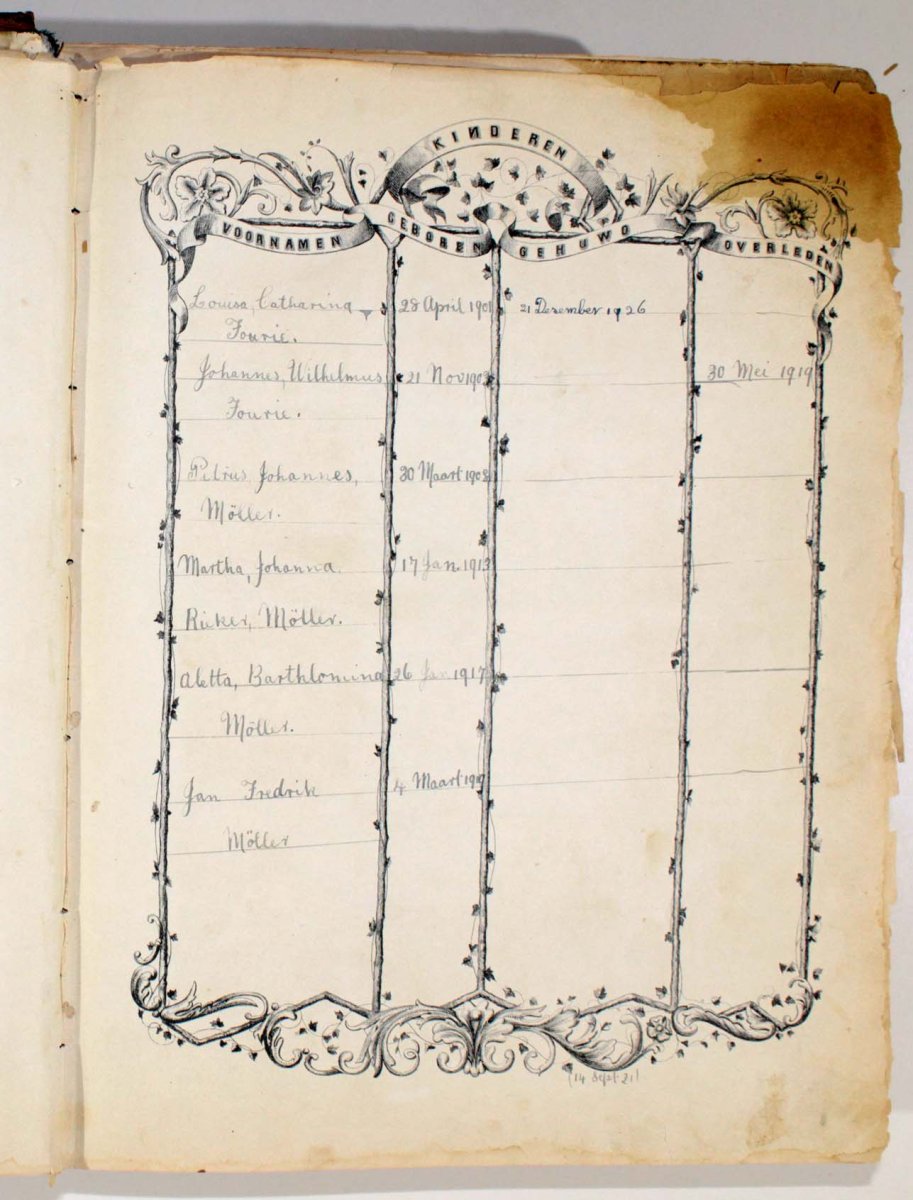 KINDEREN
VOORNAMEN GEBOREN GEHUWD OVERLEDEN
Louisa, Catharina 28 April 1901 21 Desember 1926
Fourie.
Johannes, Wilhelmus 21 Nov 1902 30 Mei 1919
Fourie.
Petrus Johannes, 30 Maart 1908
Möller.
Martha, Johanna 17 Jan. 1913
Ricker, Möller.
Aletta, Barthlomina 26 Jan 1917
Möller.
Jan Fredrik 4 Maart 1919
Möller
(14 Sept 21)